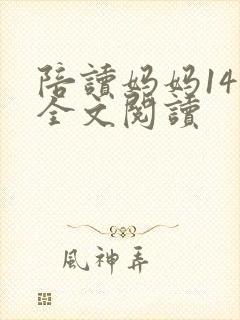 陪讀妈妈14
全文閱讀
風神弄